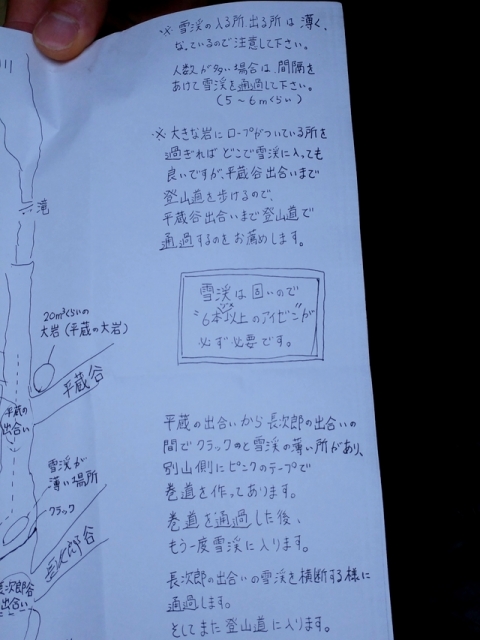 ※ 雪渓の入る所、出る所は薄く、
なっているので注意して下さい。
人数が多い場合は、間隔を
あけて雪渓を通過して下さい。
(5～6mくらい)
※ 大きな岩にロープがついている所を
過ぎればどこで雪渓に入っても
良いですが、平蔵谷出合いまで
登山道を歩けるので、
平蔵谷出合いまで登山道で
通過するのをお薦めします。
雪渓は固いので
"6本以上のアイゼン"が
必ず必要です。
平蔵の出合いから長次郎の出合いの
間でクラックのと雪渓の薄い所があり、
別山側にピンクのテープで
巻道を作ってあります。
巻道を通過した後、
もう一度雪渓に入ります。
長次郎の出合いの雪渓を横断する様に
通過します。
そしてまた登山道に入ります。
川
滝
20m³くらいの
大岩(平蔵の大岩)
平蔵谷
平蔵の
出合い
雪渓が
薄い場所
クラック
長次郎谷
長次郎谷
出合い